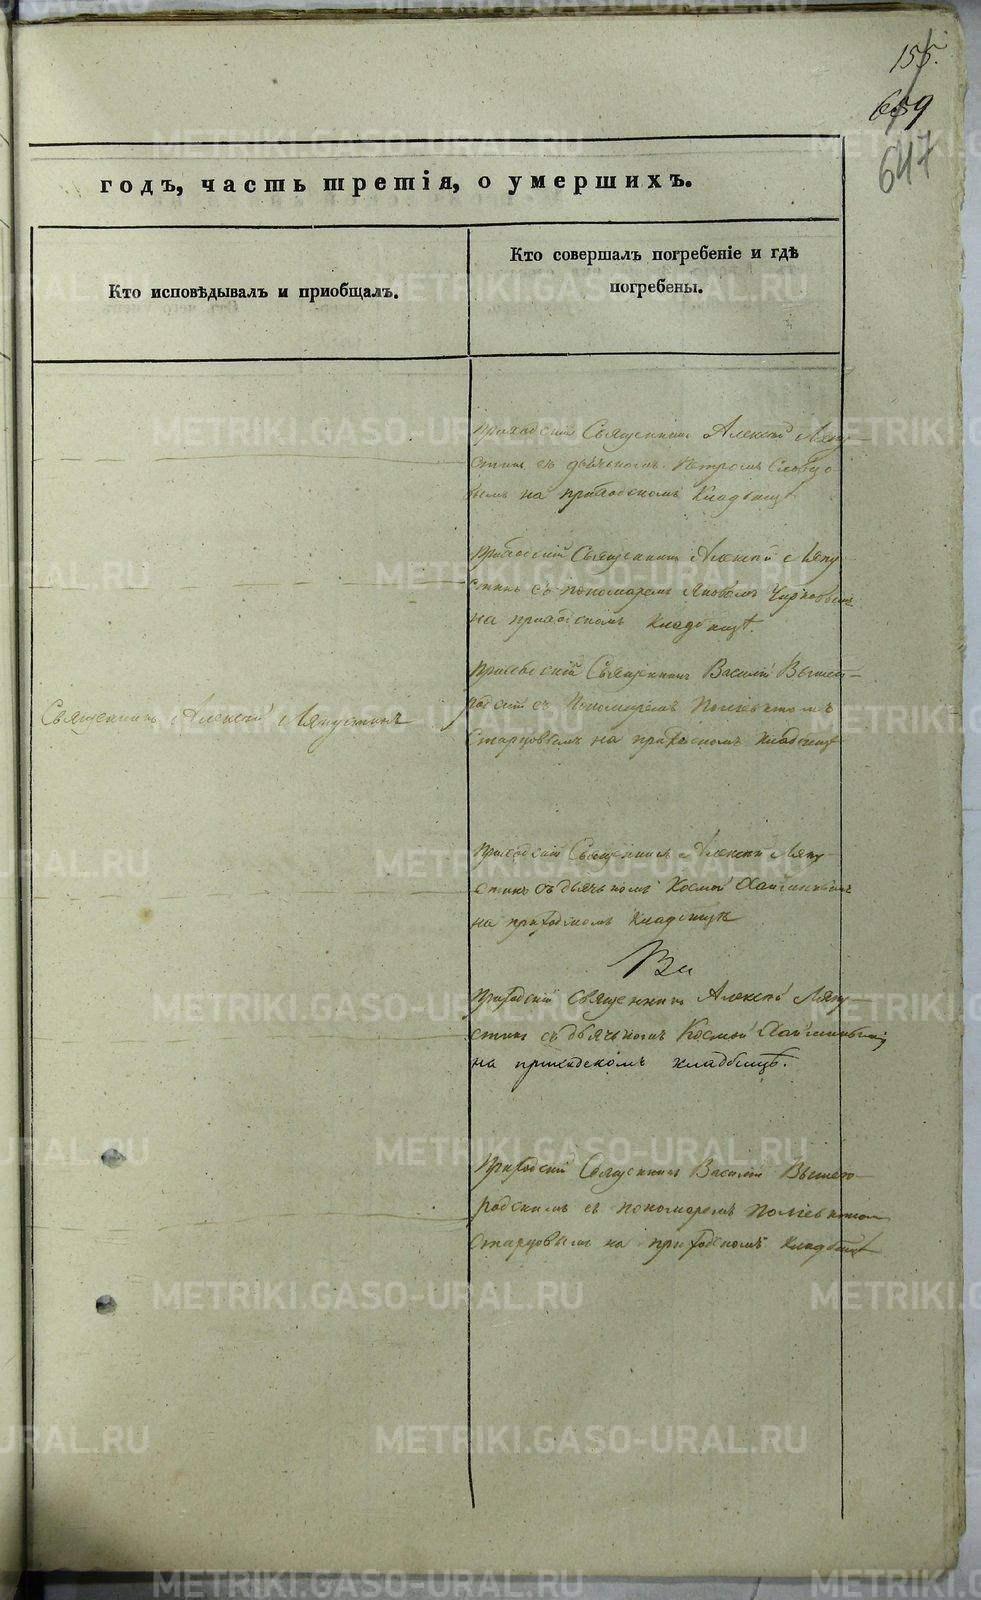 155.
659
647
годъ, часть третія, о умершихъ.
Кто исповѣдывалъ и приобщалъ.
Кто совершалъ погребеніе и гдѣ
погребены.
Приходскій Священникъ Алексѣй Ляпу-
стинъ съ дьячкомъ Петромъ Словцо
вымъ на приходскомъ Кладбищѣ
Приходскій Священникъ Алексѣй Ляпу
стинъ съ пономаремъ Яковомъ
на приходскомъ Кладбищѣ.
Священникъ Алексѣй Ляпустинъ
Приходскій Священникъ Василій Вышего-
родскій съ Пономаремъ Поліевктомъ
Старцовымъ на приходскомъ Кладбищѣ
Приходскій Священникъ Алексѣй Ляпу-
стинъ съ дьячкомъ Космой
на приходскомъ Кладбищѣ
Приходскій Священникъ Алексѣй Ляпу-
стинъ съ дьячкомъ Космой
на приходскомъ кладбищѣ.
Приходскій Священникъ Василій Вышего-
родскимъ съ пономаремъ Поліевктом
Старцовымъ на приходскомъ Кладбищѣ
METRIKI.GASO-URAL.RU